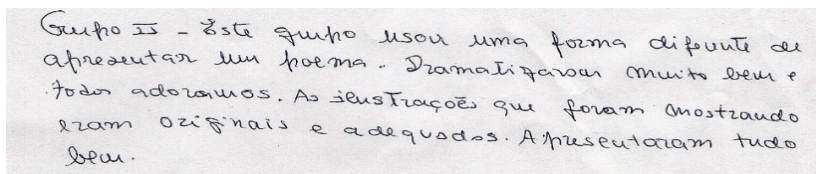 Grupo II - Este grupo usou uma forma difeunte de
apresentar um poema. Dramatizaram muito bem e
todos adoramos. As ilustrações que foram mostrando
eram originais e adequadas. Apresentaram tudo
bem.